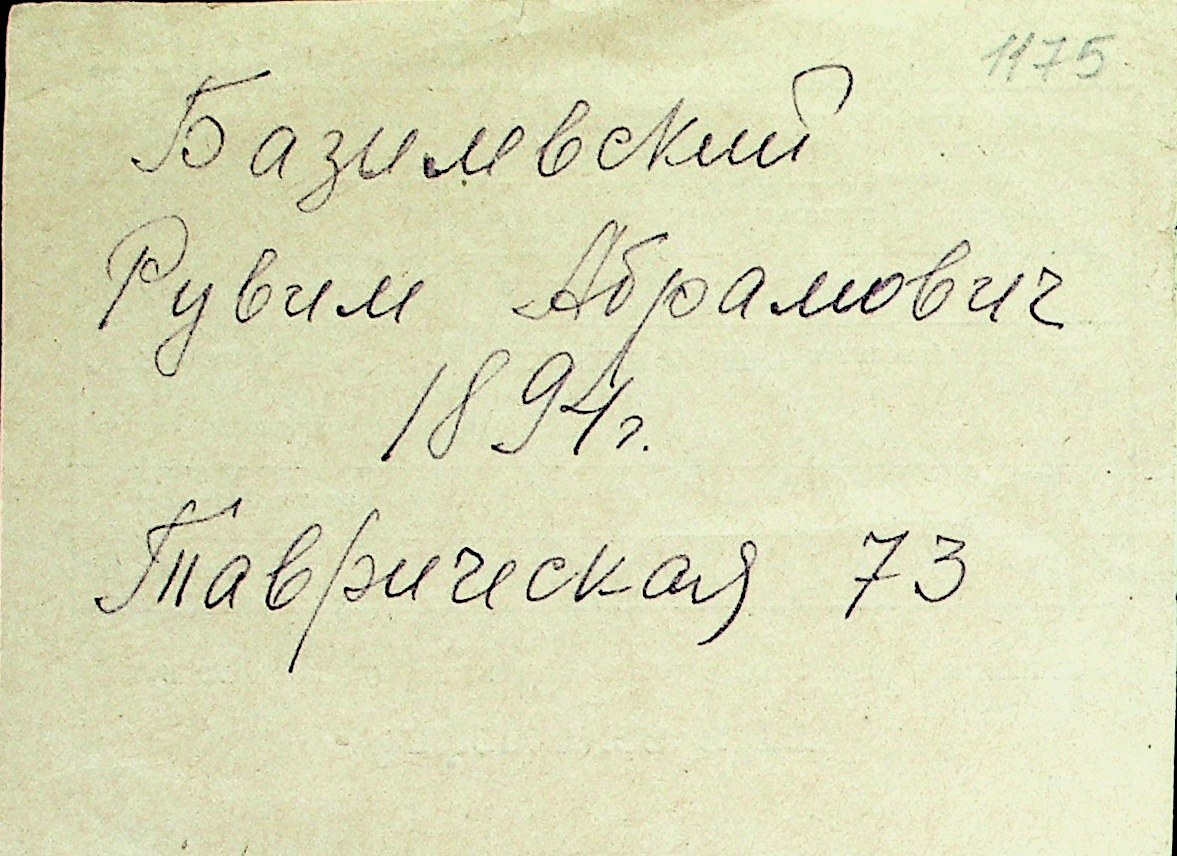 1175
Базилевский
Рувим Абрамович
1894г.
Таврическая 73